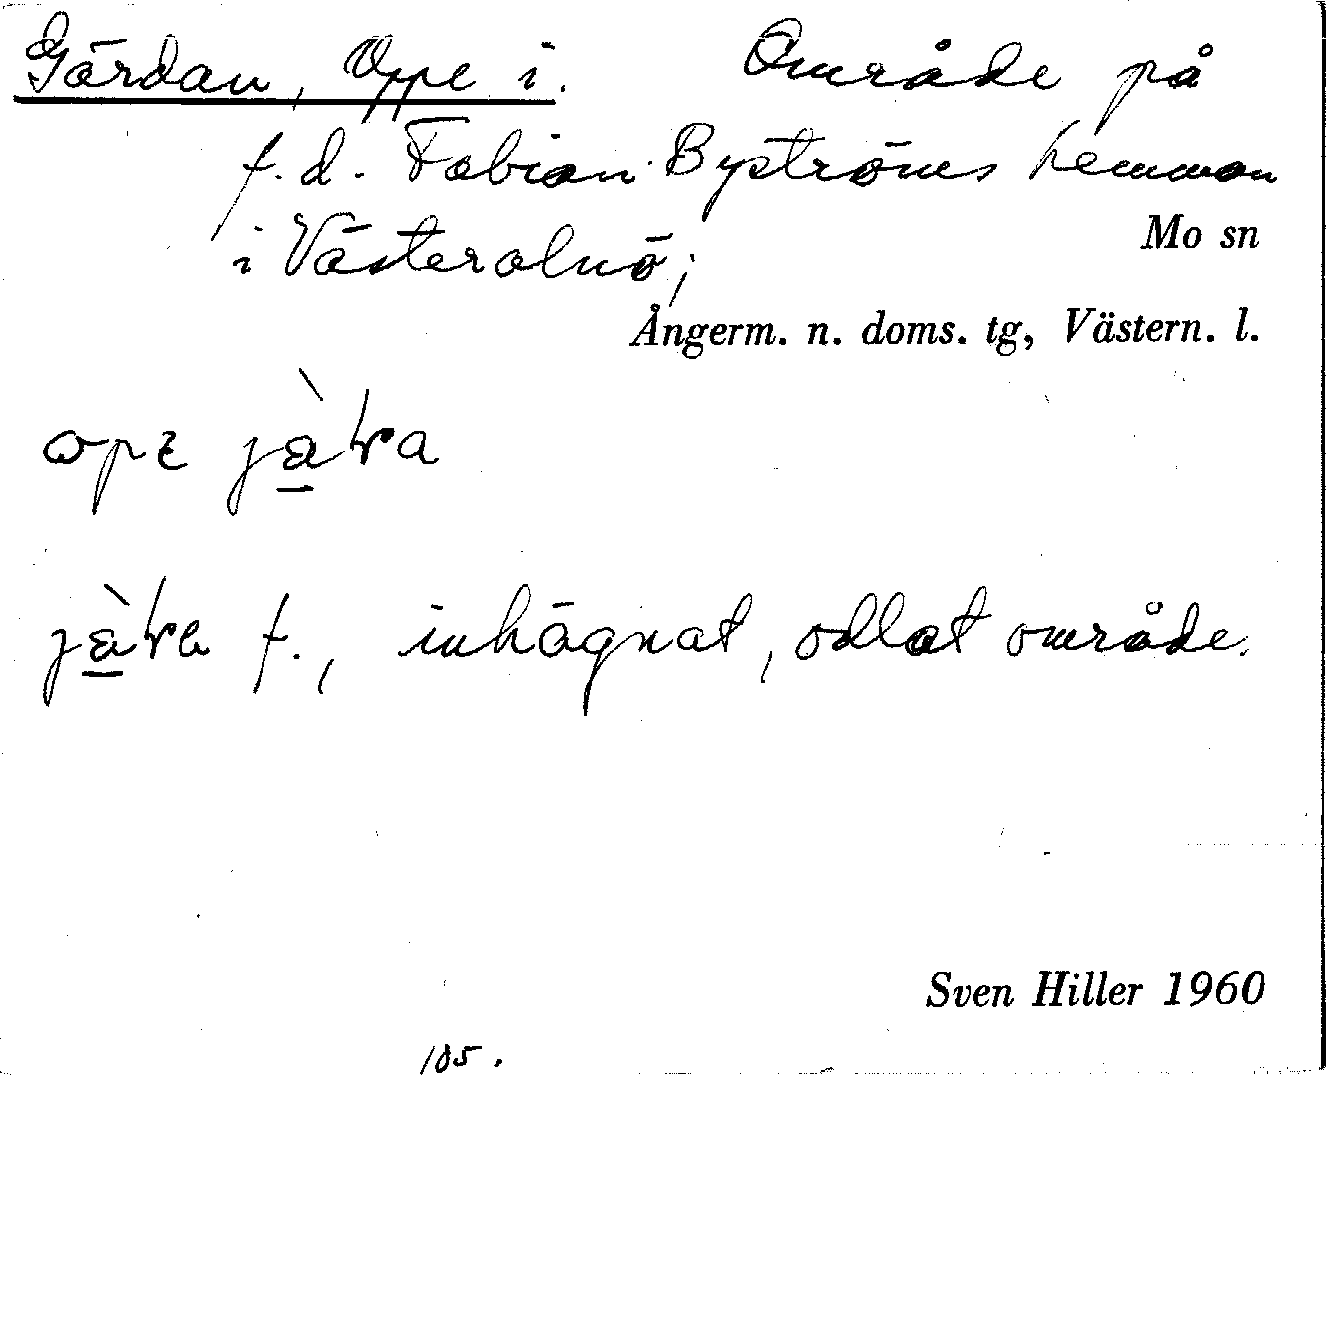 Gärdan, Oppe i. Område på
f.d. Fabian Byströms hemman
i Västeralnö;
Mo sn
Ångerm. n. doms. tg, Västern. l.
f., inhägnat, odlat område.
Sven Hiller 1960
105.